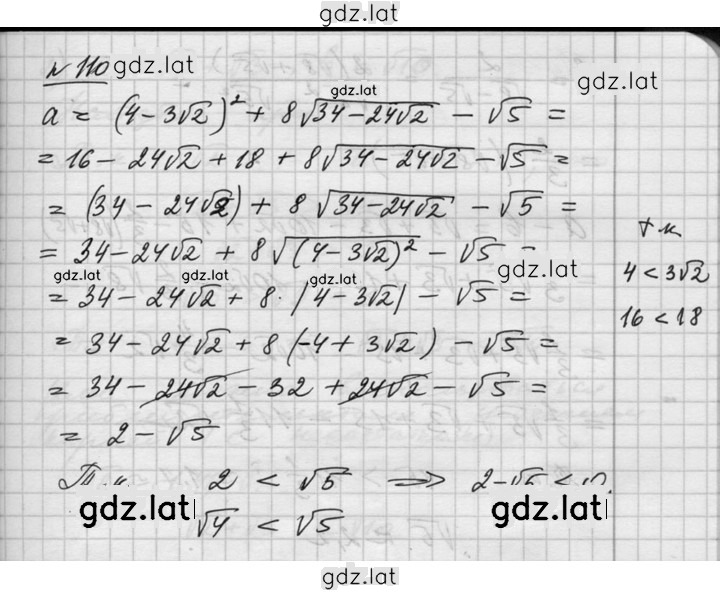 gdz.lat
№ 110 gdz.lat
gdz.lat
gdz.lat
a = (4 - 3√2)² + 8√(34 - 24√2) - √5 =
= 16 - 24√2 + 18 + 8√(34 - 24√2) - √5 =
= (34 - 24√2) + 8√(34 - 24√2) - √5 =
= 34 - 24√2 + 8√((4 - 3√2)²) - √5 =
т.к
4 < 3√2
16 < 18
gdz.lat gdz.lat gdz.lat gdz.lat
= 34 - 24√2 + 8 · |4 - 3√2| - √5 =
= 34 - 24√2 + 8 (-4 + 3√2) - √5 =
= 34 - 24√2 - 32 + 24√2 - √5 =
= 2 - √5
Т.к. 2 < √5 ⟹ 2 - √5 < 0.
gdz.lat √4 < √5 gdz.lat
gdz.lat